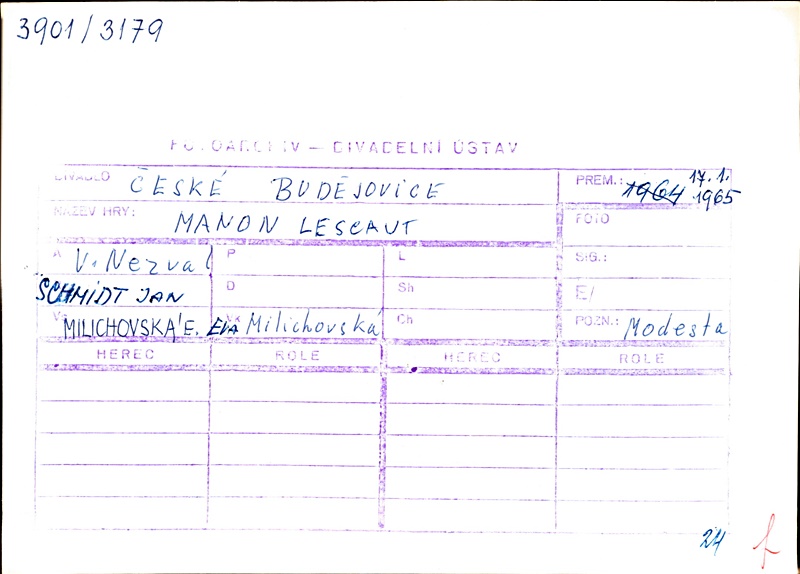 3901/3179
FOTOARCHIV – DIVADELNÍ ÚSTAV
DIVADLO ČESKÉ BUDĚJOVICE PREM.: 1964 17.1. 1965
NÁZEV HRY: MANON LESCAUT FOTO
A V. Nezval P L SIG.:
SCHMIDT JAN D Sh E/
MILICHOVSKÁ E. EVA Milichovská Ch POZN.: Modesta
HEREC ROLE HEREC ROLE
24